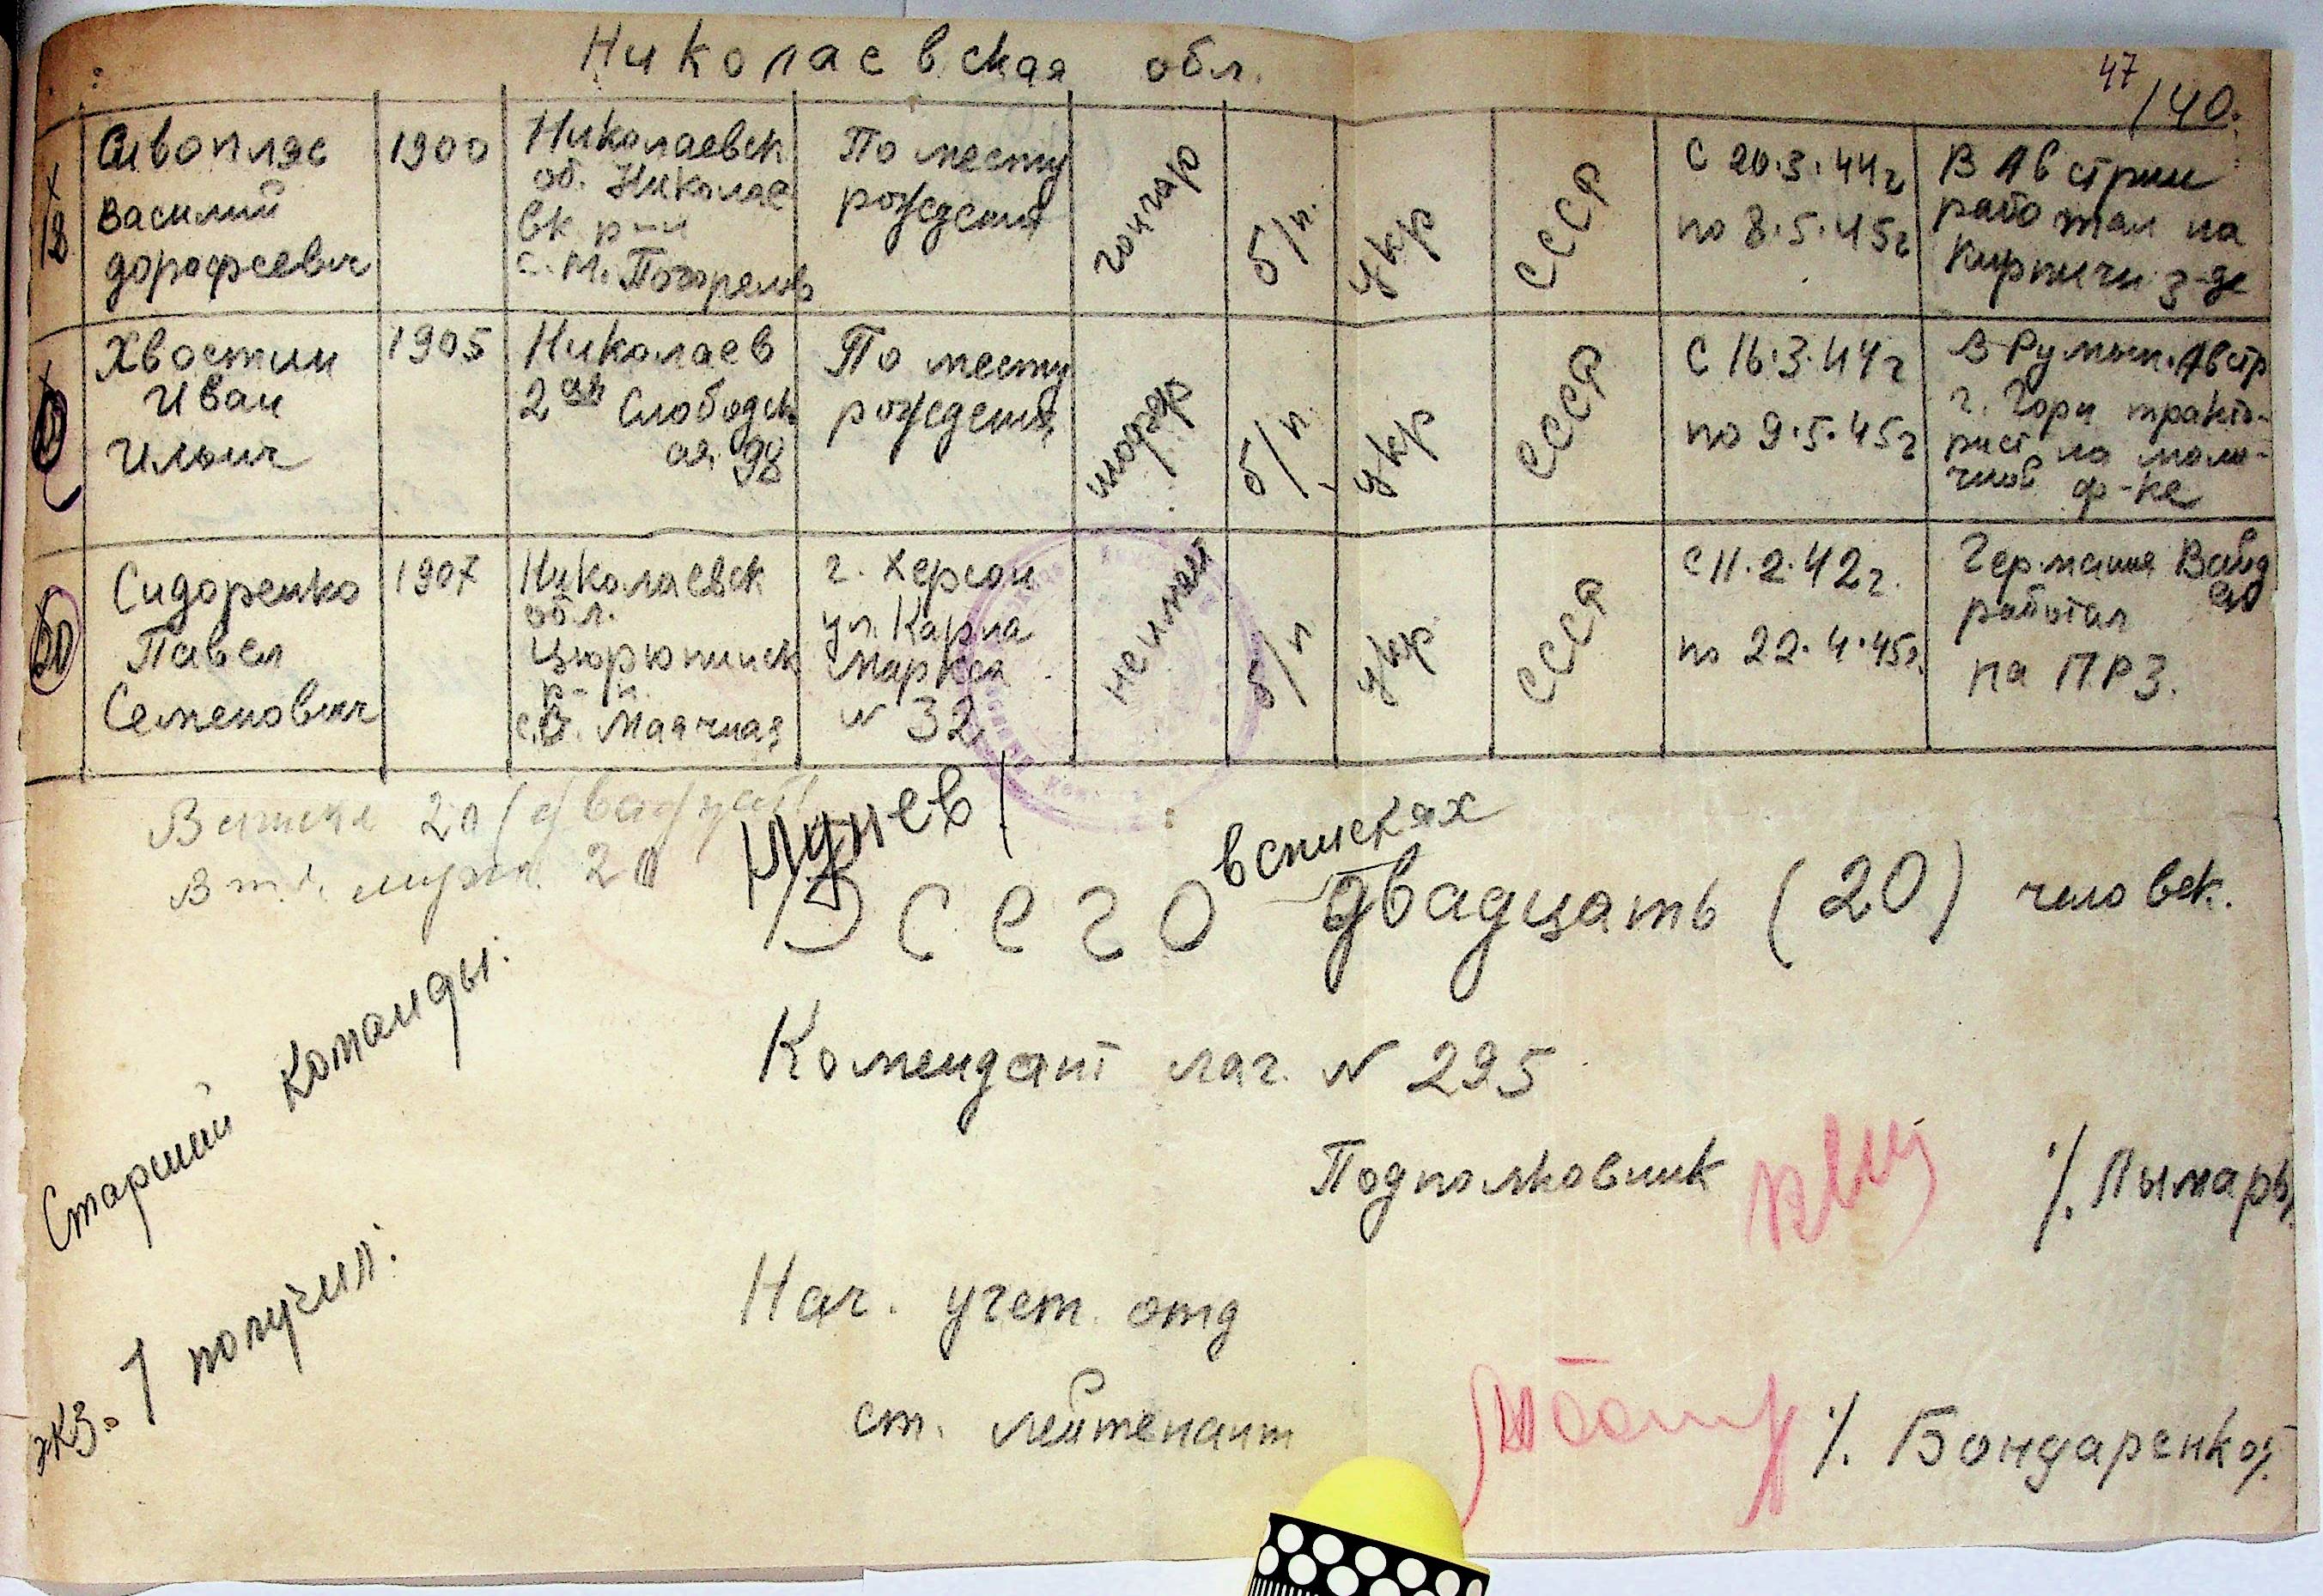 Николаевская обл.
47
/140.
18
Сивопляс
Василий
дорофеевич
1900
Николаевск
об. Николае
вк р-н
с. М. Погорелов
По месту
рождения
гончар
б/п.
укр
СССР
С 20.3.44г
по 8.5.45г
В Австрии
работал на
Кирпичн з-де
Хвостин
Иван
Ильич
1905
Николаев
2ая Слободск
ая 98
По месту
рождения
шофер
б/п.
укр
СССР
С 16.3.44г
по 9.5.45г
В Румын. Австр
г. Горн тракто-
рист на моло-
чной ф-ке
20
Сидоренко
Павел
Семенович
1907
Николаевск
обл.
Цюрюпинск
р-н.
с. Маячная
г. Херсон
ул. Карла
Маркса
N 32
не имеет
б/п
укр
СССР
с 11.2.42г.
по 22.4.45г.
Германия
работал
на ПРЗ.
20 /двадцать/
В т.ч. мужч. 20
Всего в списках двадцать (20) человек.
Старший команды:
Комендант лаг. N 295
Подполковник /. Лымарь/.
экз. 1 получил:
Нач. учет. отд
ст. лейтенант /. Бондаренко/.